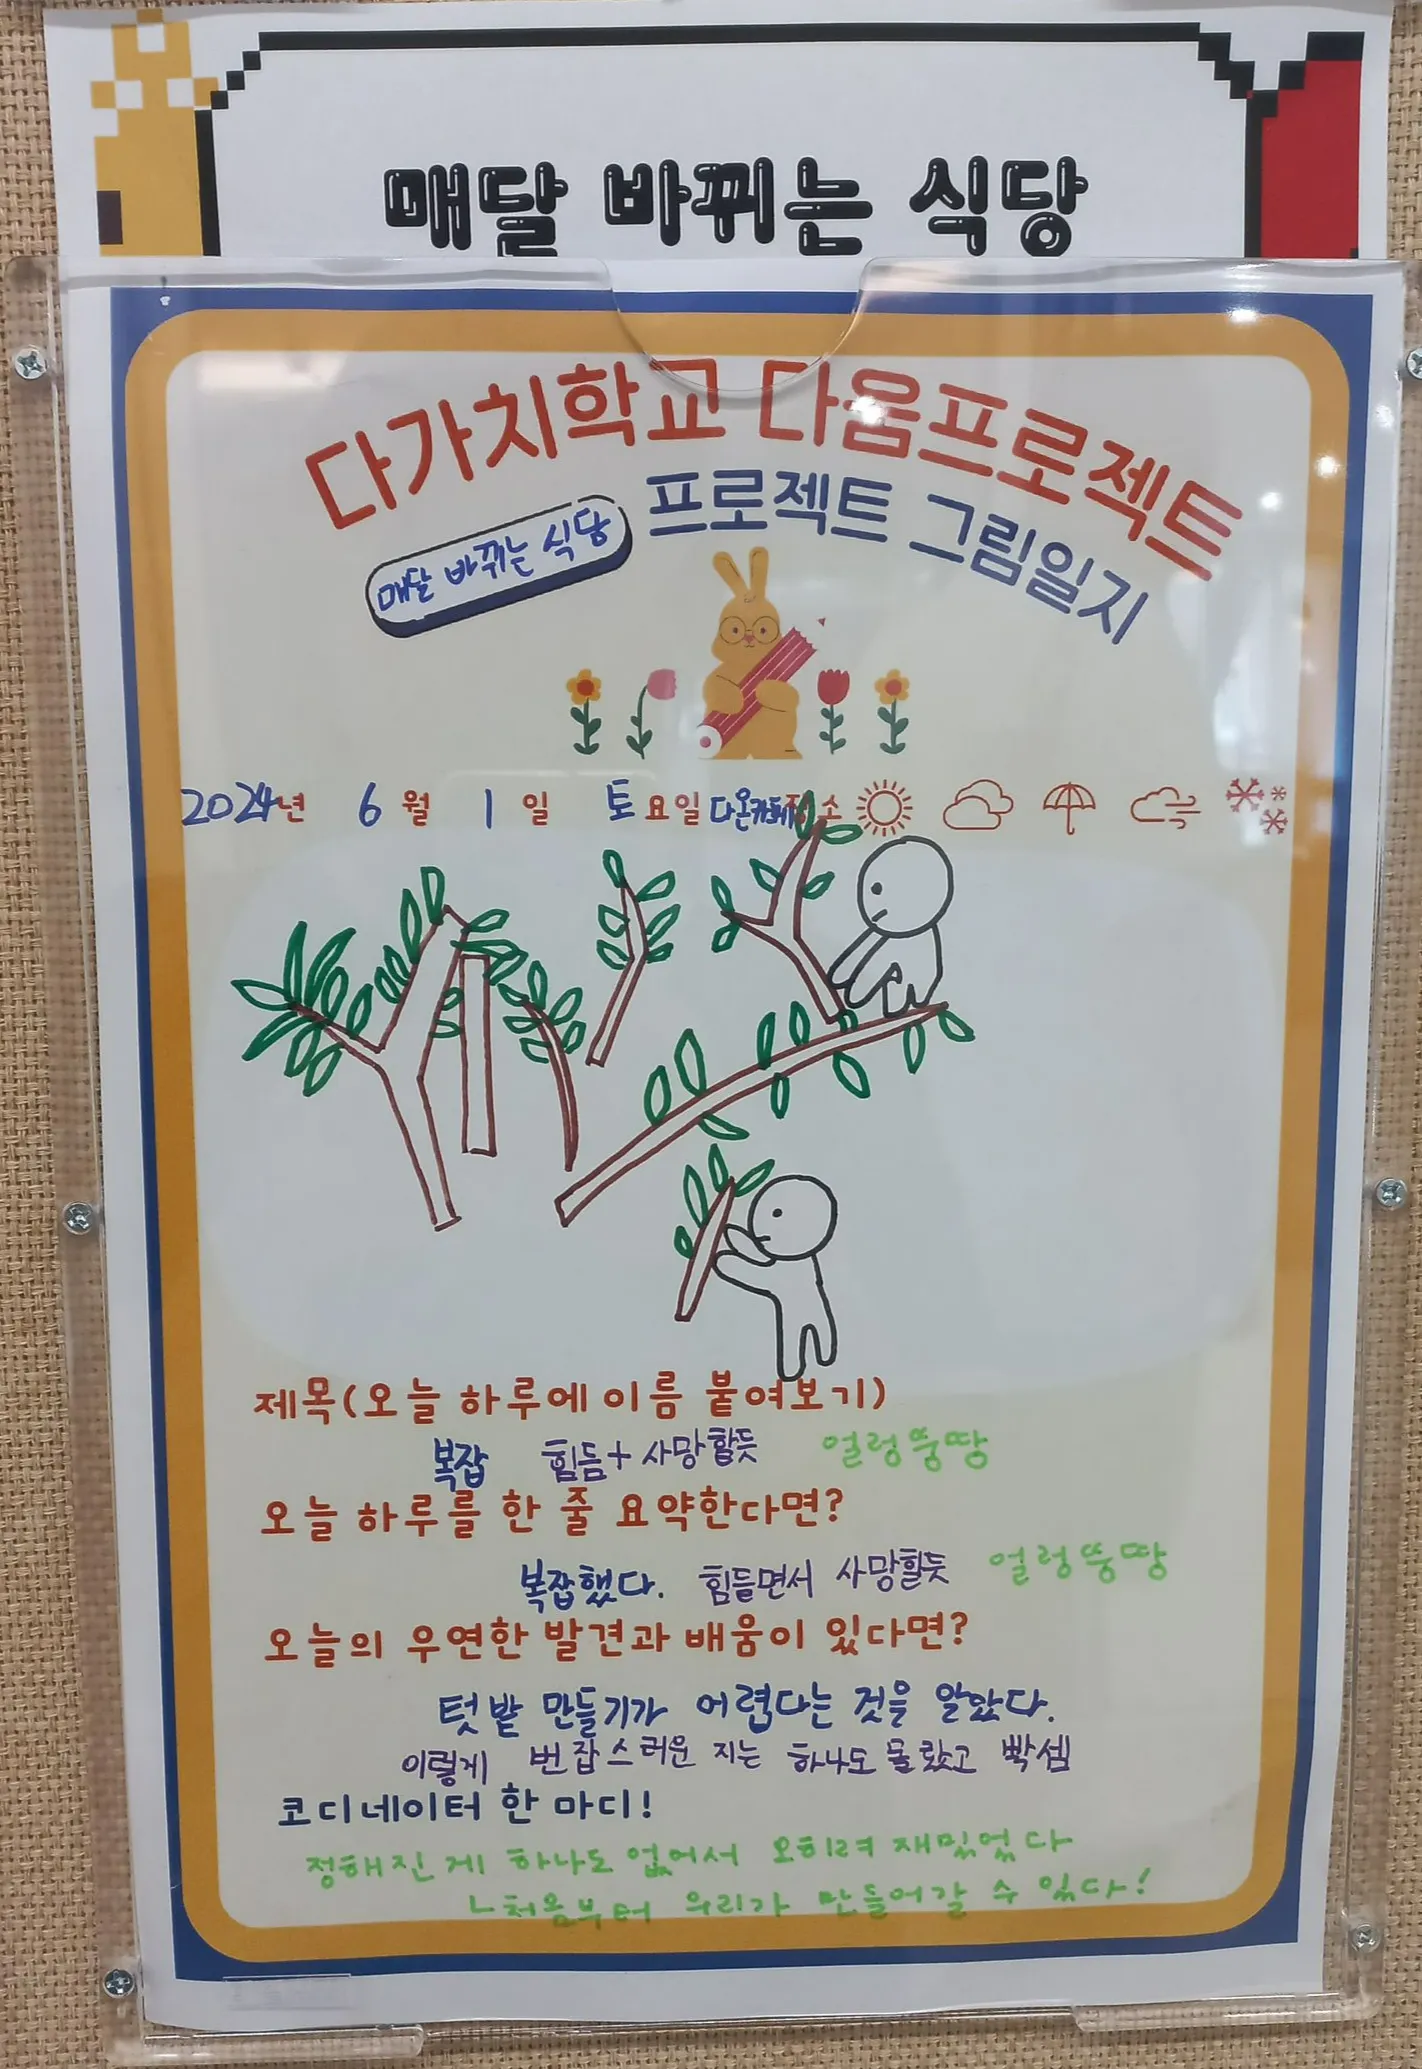 매달 바뀌는 식당
다가치학교 다음프로젝트
매달 바뀌는 식당 프로젝트 그림일지
2024년 6월 1일 토요일 다온 소
제목(오늘 하루에 이름 붙여보기)
복잡 힘듬+사망할듯 얼렁뚱땅
오늘 하루를 한 줄 요약한다면?
복잡했다. 힘들면서 사망할듯 얼렁뚱땅
오늘의 우연한 발견과 배움이 있다면?
텃밭 만들기가 어렵다는 것을 알았다.
이렇게 번잡스러운 지는 하나도 몰랐고 빡셈
코디네이터 한 마디!
정해진 게 하나도 없어서 오히려 재밌었다
ㄴ처음부터 우리가 만들어갈 수 있다!